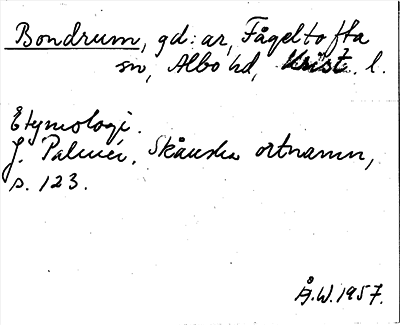 Bondrum, gd:ar, Fågeltofta
sn, Albo hd, Krist. l.
Etymologi.
J. Palmér, Skånska ortnamn,
s. 123.
Å.W. 1957.